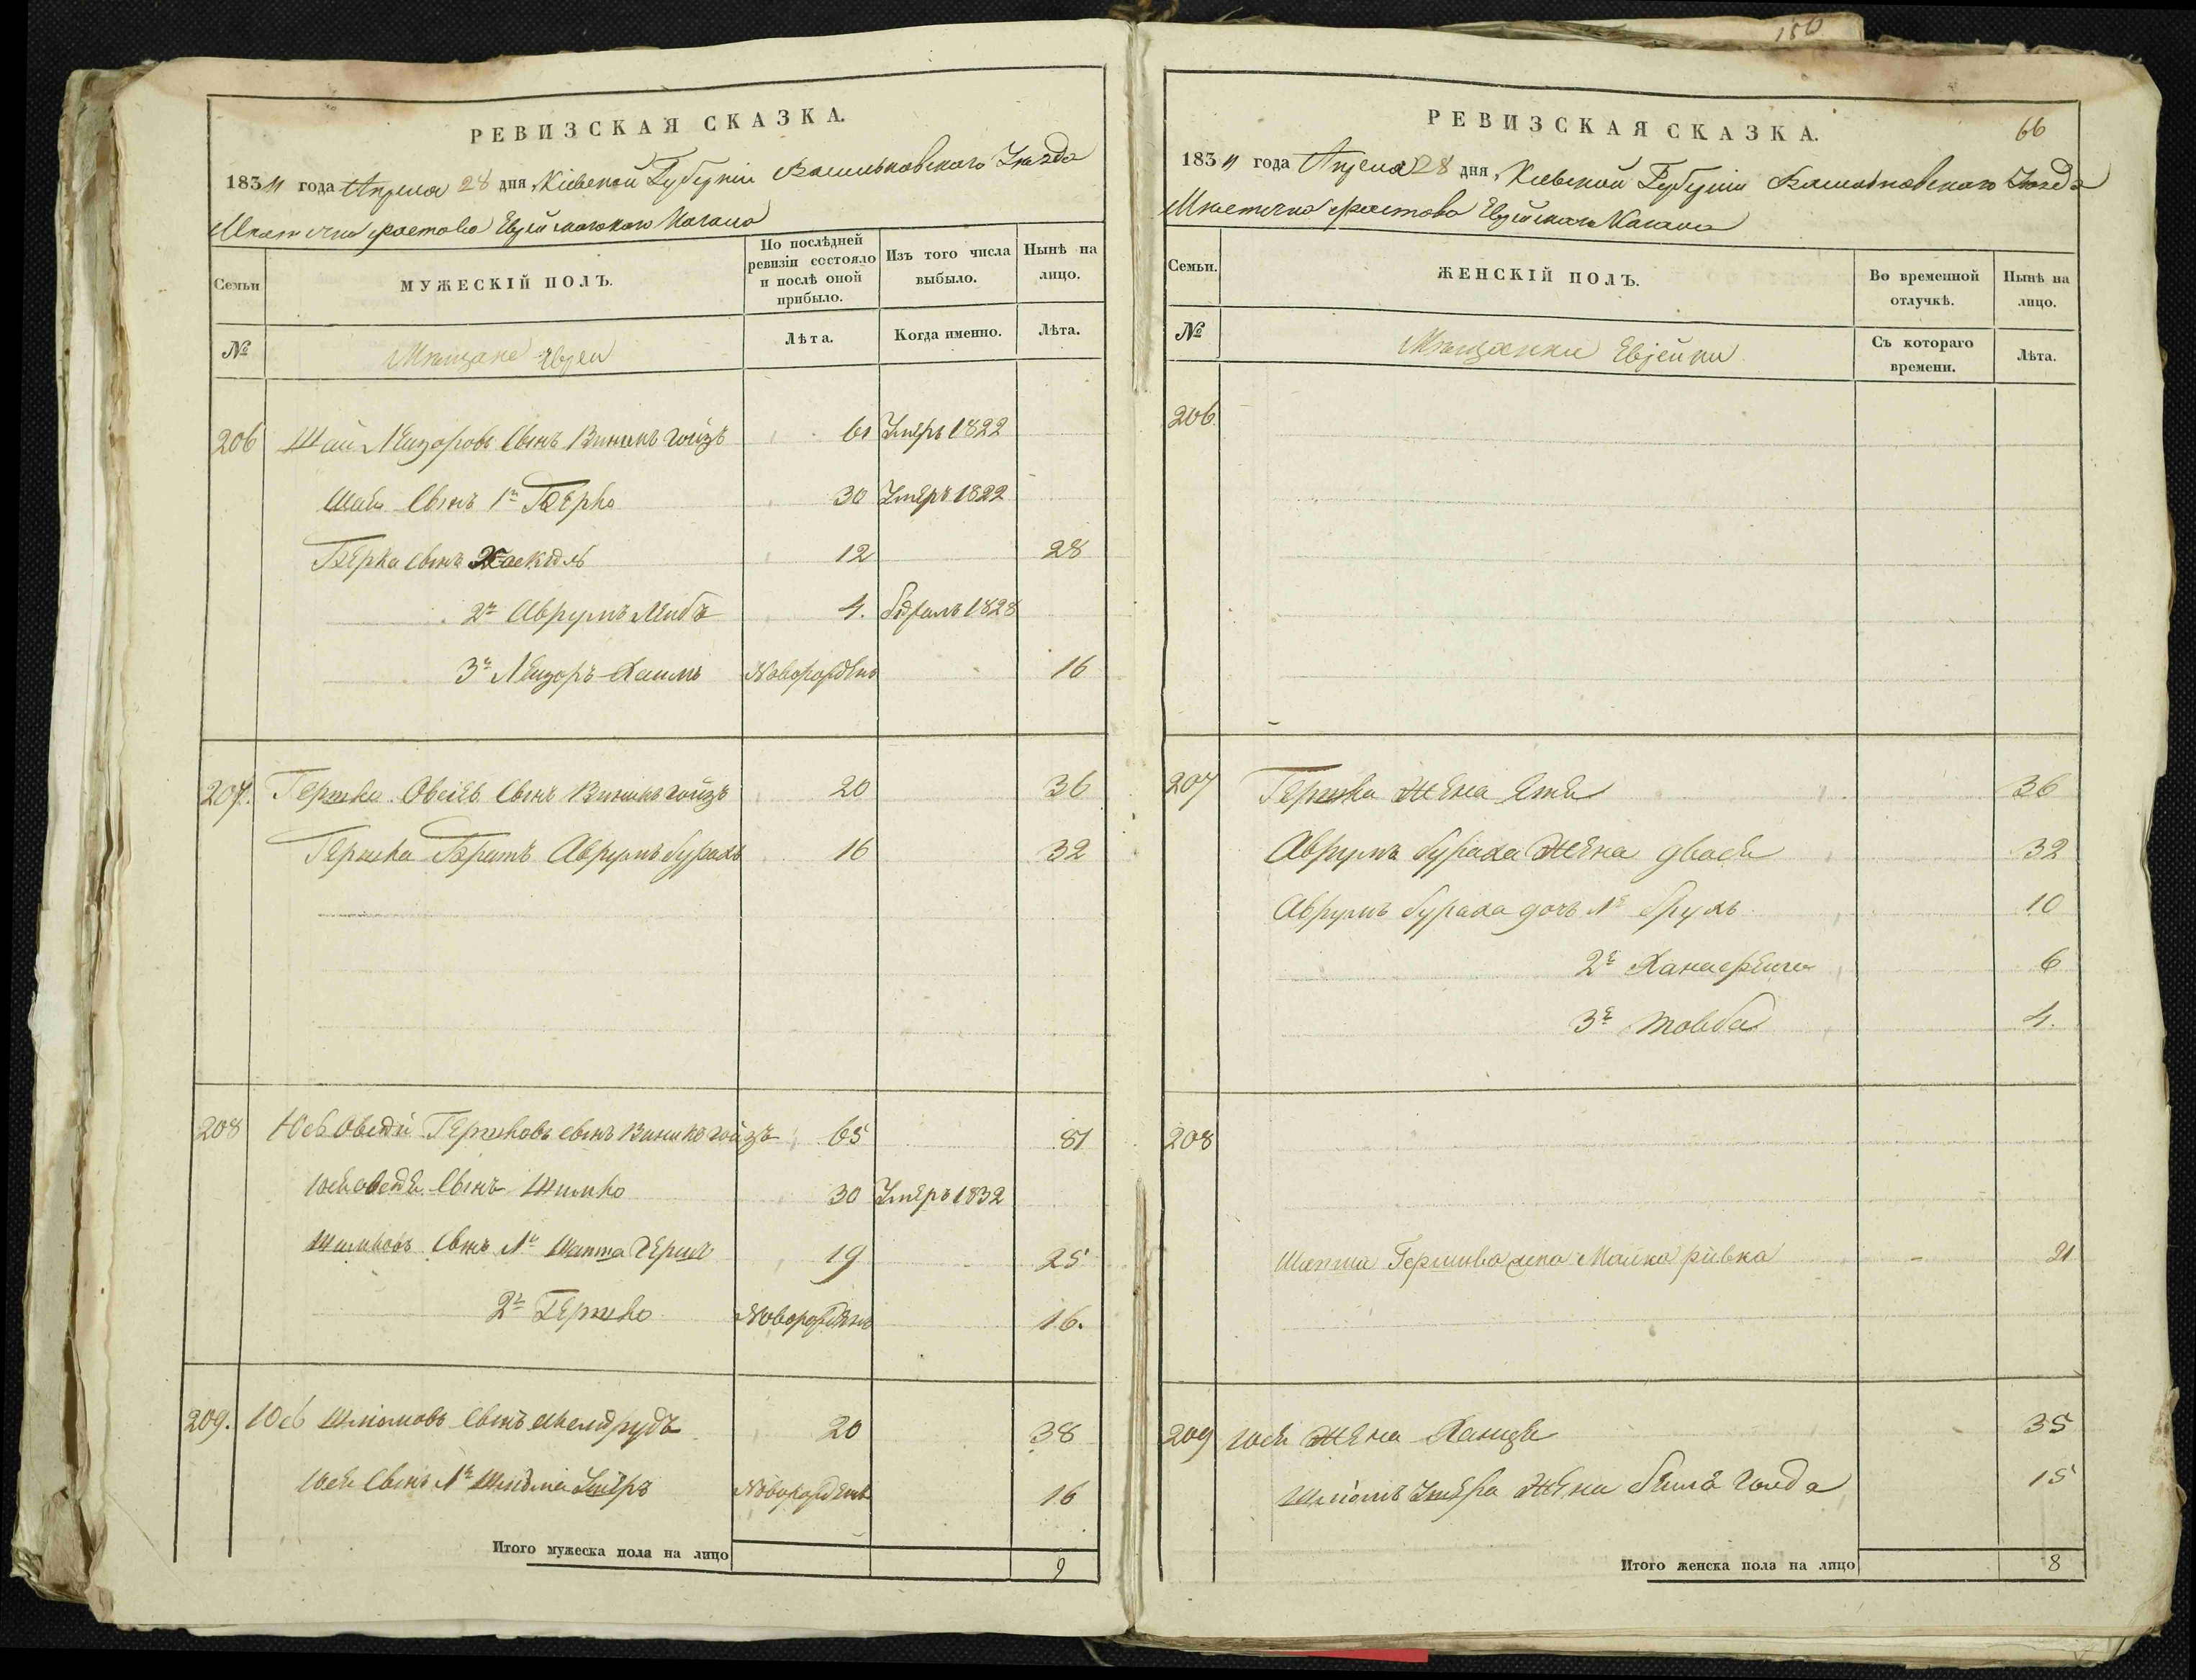 РЕВИЗСКАЯ СКАЗКА.
1834 года Апреля 28 дня, Кіевской Губерніи Васильковского Уезда
Местечка Фастова Еврейского Кагала
Семьи.
МУЖЕСКІЙ ПОЛЪ.
По послѣдней ревизіи состояло и послѣ оной прибыло.
Изъ того числа выбыло.
Нынѣ на лицо.
№
Мещане Евреи
Лѣта.
Когда именно.
Лѣта.
206 Шая Лейзоровъ Сынъ 61 Умеръ 1822
Шаи Сынъ 1й Берко 30 Умеръ 1822
Берка сынъ Хаскель 12 28
2й Аврумъ Лейбъ 4. 1828
3й Лейзоръ Хаимъ Новорожденъ 16
207. Гершко Овсіевъ Сынъ 20 36
Гершка Братъ Аврумъ Бурахъ 16 32
208 Гершковъ сынъ 65 81
Сынъ Шимко 30 Умеръ 1832
Шимковъ Сынъ 1й Шапта Гершъ 19 25
2й Гершко Новорожденъ 16.
209. Юсь Шліомовъ Сынъ 20 38
Сынъ 1й Новорожденъ 16
Итого мужеска пола на лицо 9
РЕВИЗСКАЯ СКАЗКА.
66
1834 года Апреля 28 дня, Кіевской Губерніи Васильковского Уезда
Местечка Фастова Еврейскаго Кагала
Семьи.
ЖЕНСКІЙ ПОЛЪ.
Во временной отлучкѣ.
Нынѣ на лицо.
№
Мещанки Еврейки
Съ котораго времени.
Лѣта.
206
207 Гершка Жена Етя 36
Аврумъ Бураха Жена Двося 32
Аврумъ Бураха дочь 1я Брухъ 10
2я 6
3я Товба 4.
208
Шапта Гершова жена Малка Ривка 21
209 Юся Жена 35
Жена Бейла Голда 15
Итого женска пола на лицо 8